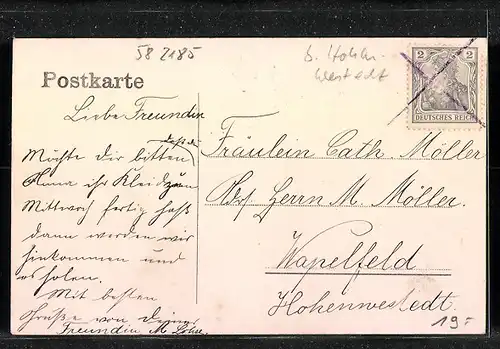 58 2185
b. Hohen-
westedt
2 2
DEUTSCHES REICH
Postkarte
Liebe Freundin
daß du
Möchte dir bitten
Anna ihr Kleid zum
Mittwoch fertig hast
dann werden wir
hinkommen und
es holen.
Mit besten
Grüße von deiner
Freundin M
Fräulein Cath. Möller
Adr. Herrn M. Möller.
Wapelfeld
Hohenwestedt.
19.-